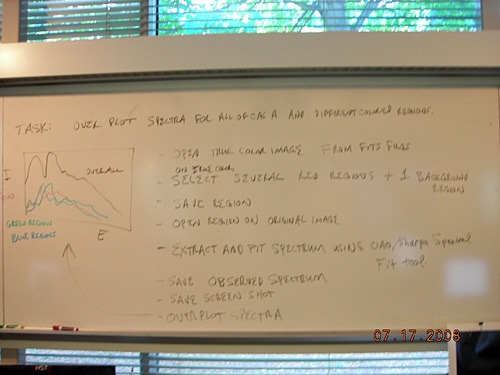 TASK: OVER PLOT SPECTRA FOR ALL OF CAS A AND DIFFERENT COLORED REGIONS.
- OPEN TRUE COLOR IMAGE FROM FITS FILES
ON TRUE COLOR
- SELECT SEVERAL RED REGIONS + 1 BACKGROUND REGION
- SAVE REGION
- OPEN REGION ON ORIGINAL IMAGE
- EXTRACT AND FIT SPECTRUM USING CIAO/Sherpa Spectral
Fit tool
- SAVE OBSERVED SPECTRUM
- SAVE SCREEN SHOT
- OVERPLOT SPECTRA
I
OVERALL
RED
GREEN REGIONS
BLUE REGIONS
E
07.17.2008